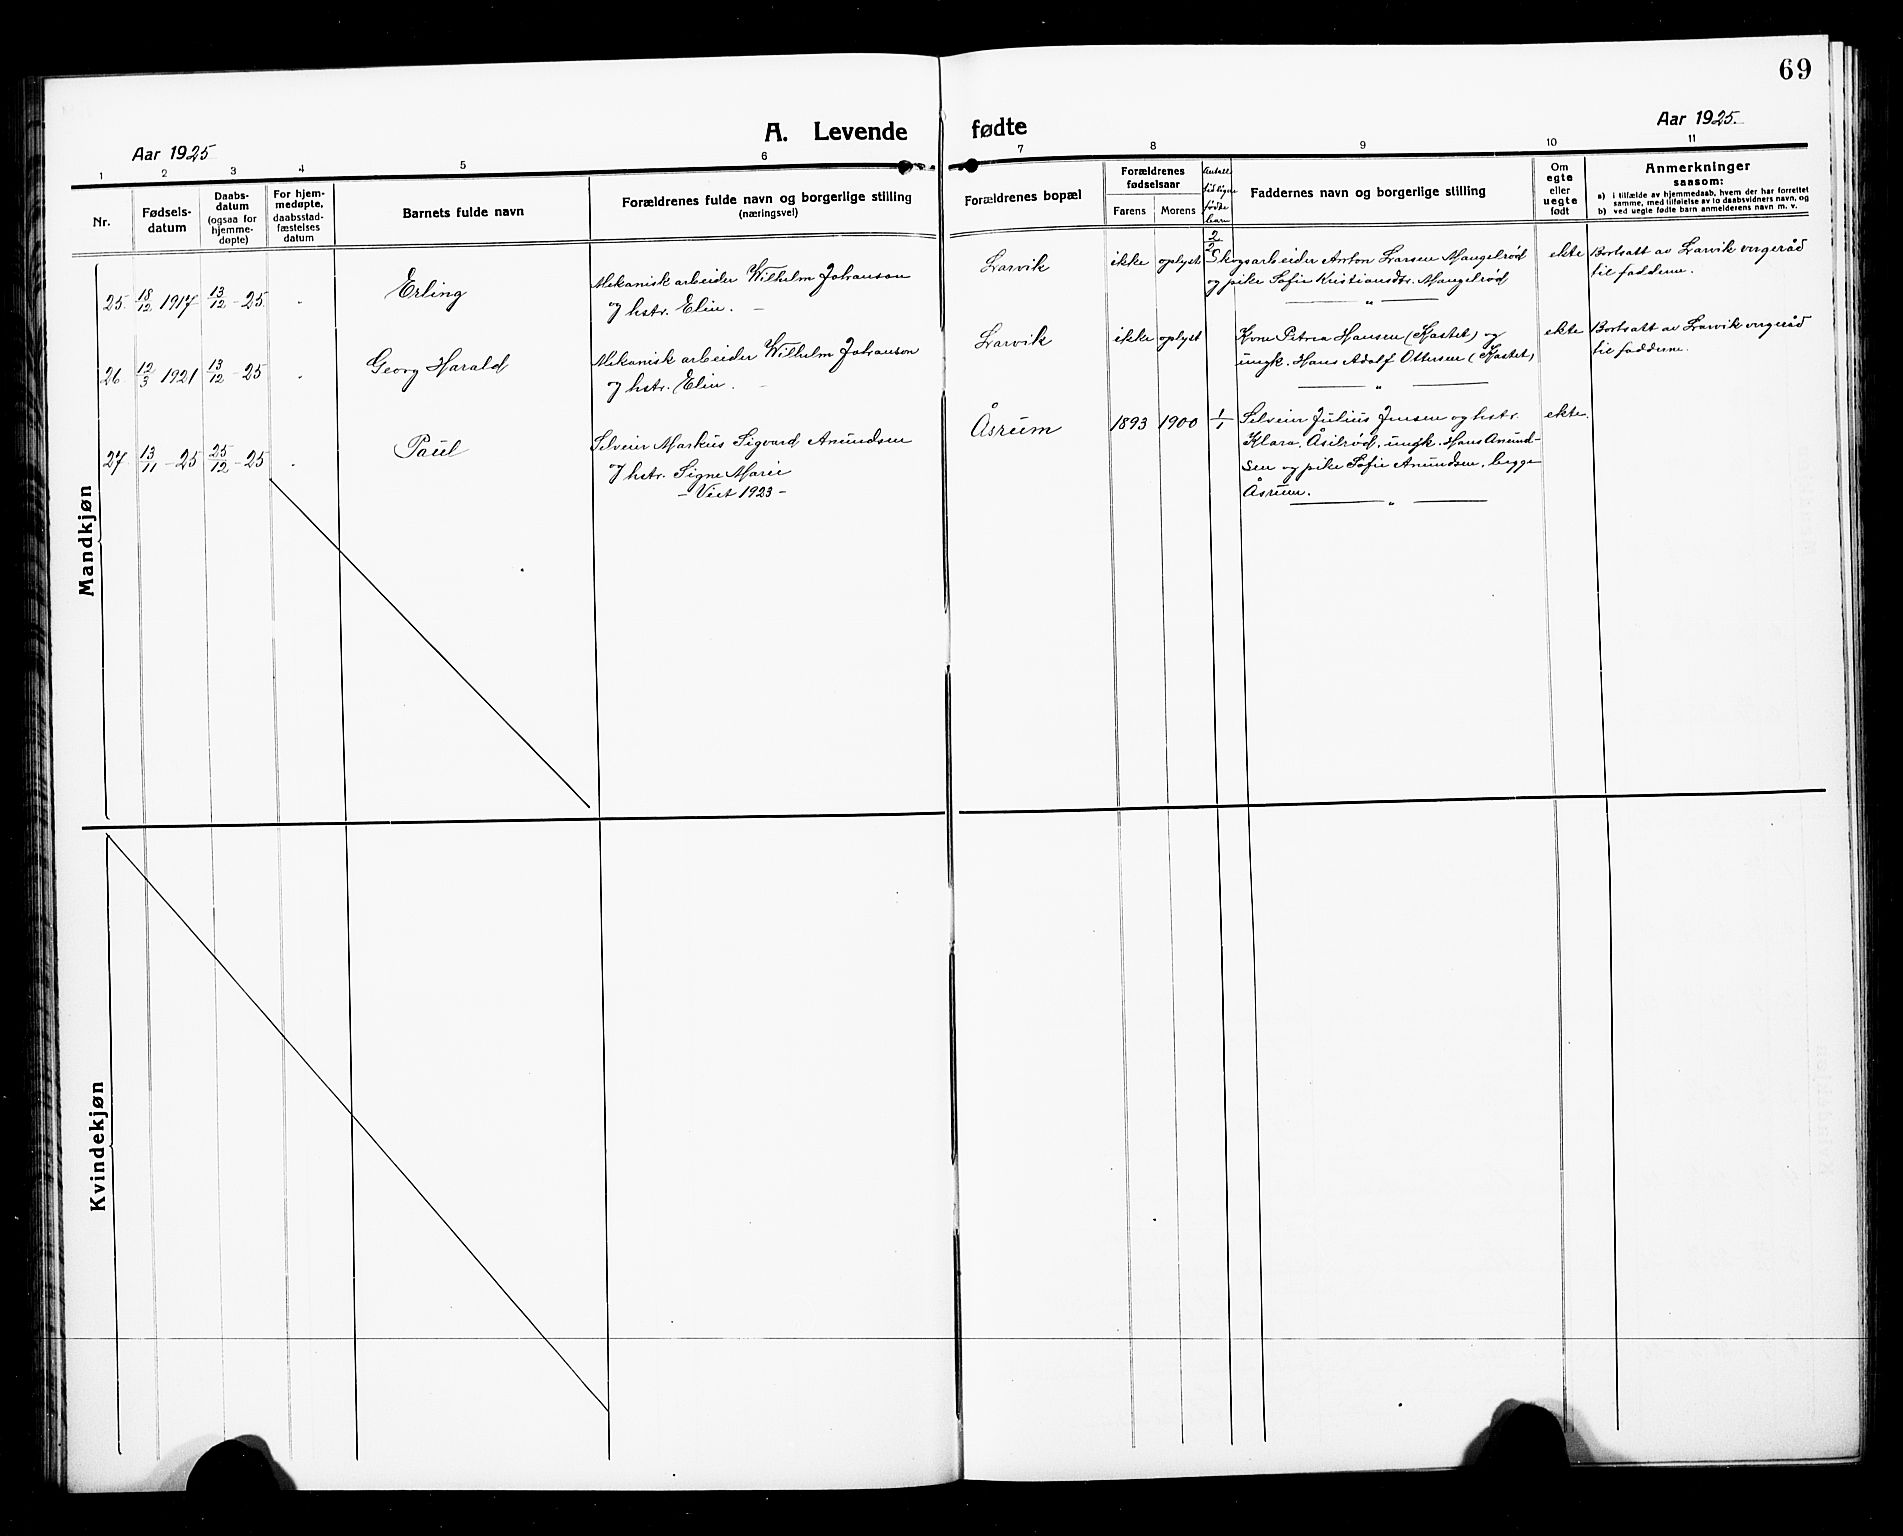 69
A. Levende fødte
Aar 1925
Aar 1925.
1 2 3 4 5 6 7 8 9 10 11
Nr.
Fødsels-
datum
Daabs-
datum
(ogsaa for
hjemme-
døpte)
For hjem-
medøpte,
daabsstad-
fæstelses
datum
Barnets fulde navn
Forældrenes fulde navn og borgerlige stilling
(næringsvei)
Forældrenes bopæl
Forældrenes
fødselsaar
Farens Morens
Antall
tidligere
fødte
barn
Faddernes navn og borgerlige stilling
Om
egte
eller
uegte
født
Anmerkninger
saasom:
a) i tilfælde av hjemmedaab, hvem der har forrettet
samme, med tilføielse av to daabsvidners navn, og
b) ved uegte fødte barn anmelderens navn m. v.
Mandkjøn
25. 18/12 1917 13/12 - 25 "
Erling
Mekanisk arbeider Wilhelm Johanson
og hstr. Elin. —
Larvik
ikke oplyst
2/2
Skogsarbeider Anton Larsen Mangelrød
og pike Sofie Kristiansdtr. Mangelrød
— " —
ekte
Bortsatt av Larvik vergeråd
til fadderne.
26. 12/3 1921 13/12 - 25 "
Georg Harald
Mekanisk arbeider Wilhelm Johanson
og hstr. Elin. —
Larvik
ikke oplyst
Kone Petrea Hansen (Kastet) og
ungk. Hans Adolf Ottersen (Kastet)
— " —
ekte
Bortsatt av Larvik vergeråd
til fadderne.
27. 13/11 - 25 25/12 - 25 "
Paul
Selveier Markus Sigvard Anundsen
og hstr. Signe Marie
- Viet 1923 -
Åsrum
1893 1900 1/1
Selveier Julius Jensen og hstr.
Klara, Åsilrød, ungk. Hans Anund-
sen og pike Sofie Anundsen, begge
Åsrum.
— " —
ekte
Kvindekjøn